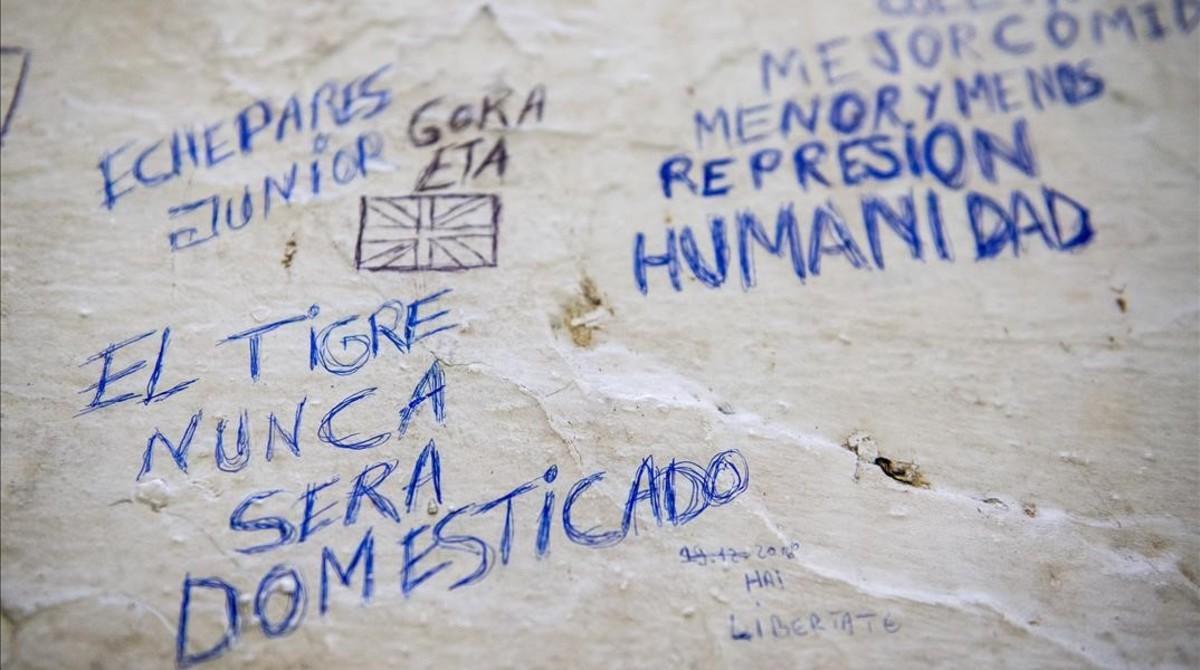 ECHEPARES
JUNiOR
GORA
ETA
MEJOR COMID
MENOR Y MENOS
REPRESiON
HUMANIDAD
EL TiGRE
NUNCA
SERA
DOMESTiCADO
HAi
LiBERTATE